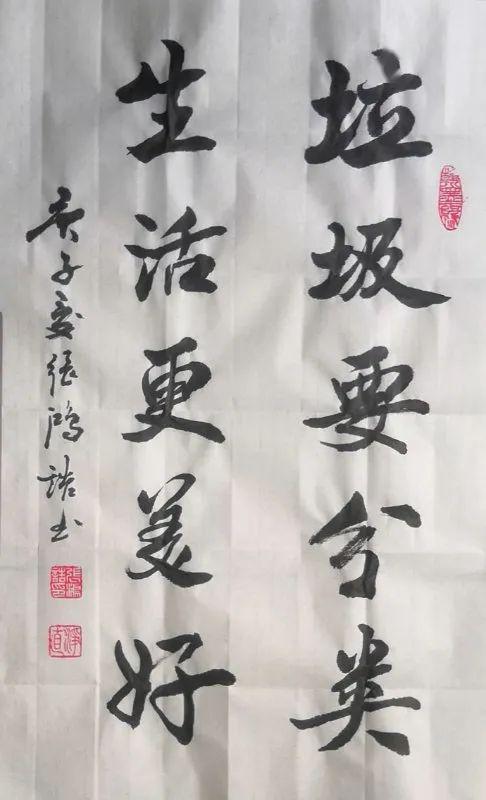 垃圾要分类
生活更美好
庚子夏张鸿喆书